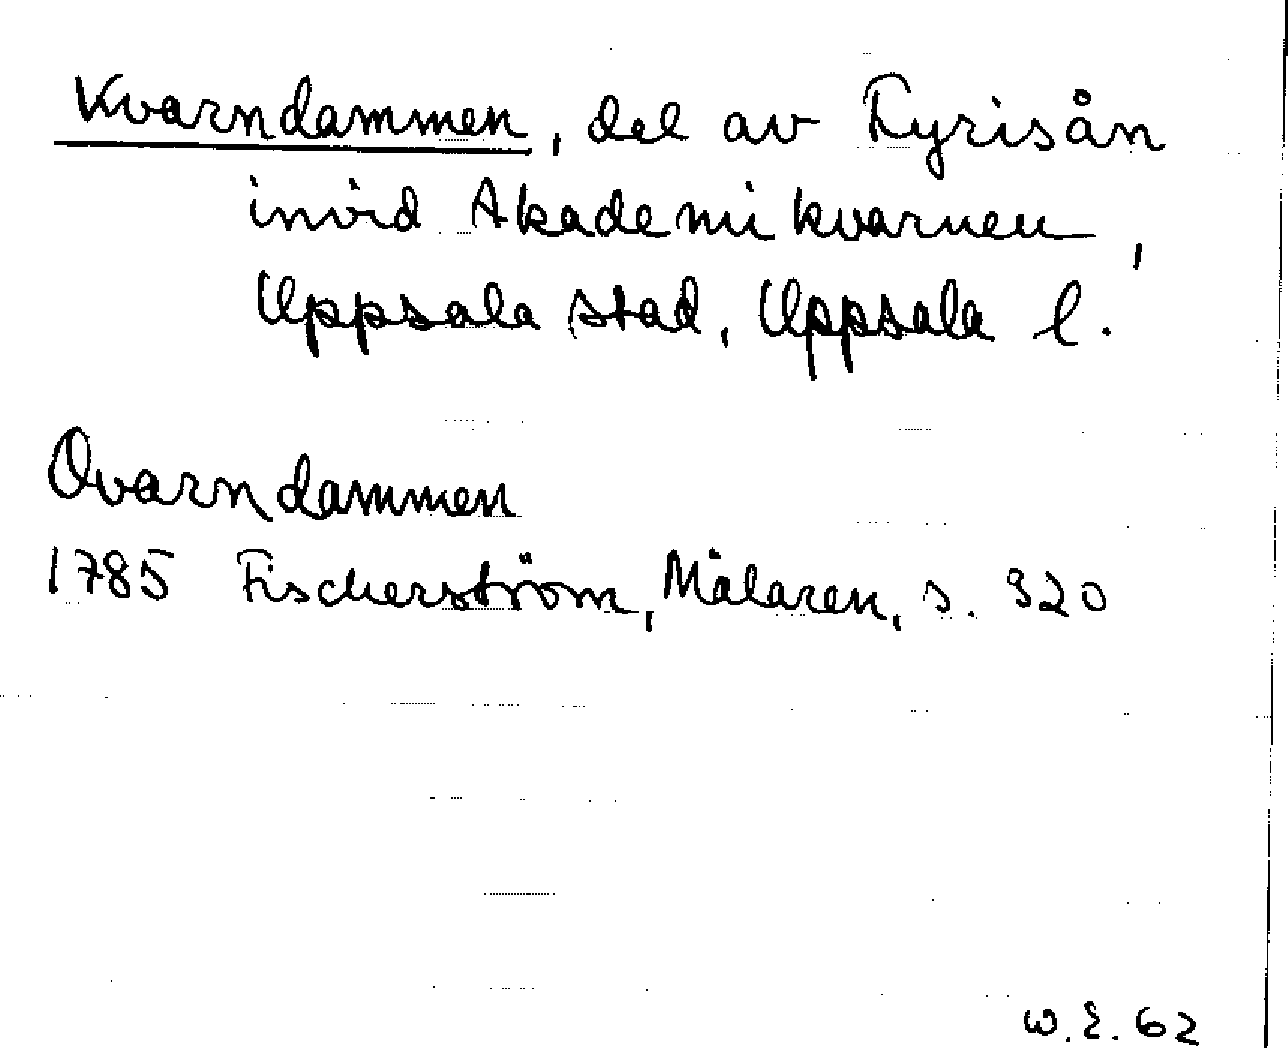 Kvarndammen, del av Fyrisån
invid Akademikvarnen,
Uppsala stad, Uppsala l.
Qvarndammen
1785 Fischerström, Mälaren, s. 320
W.E. 62